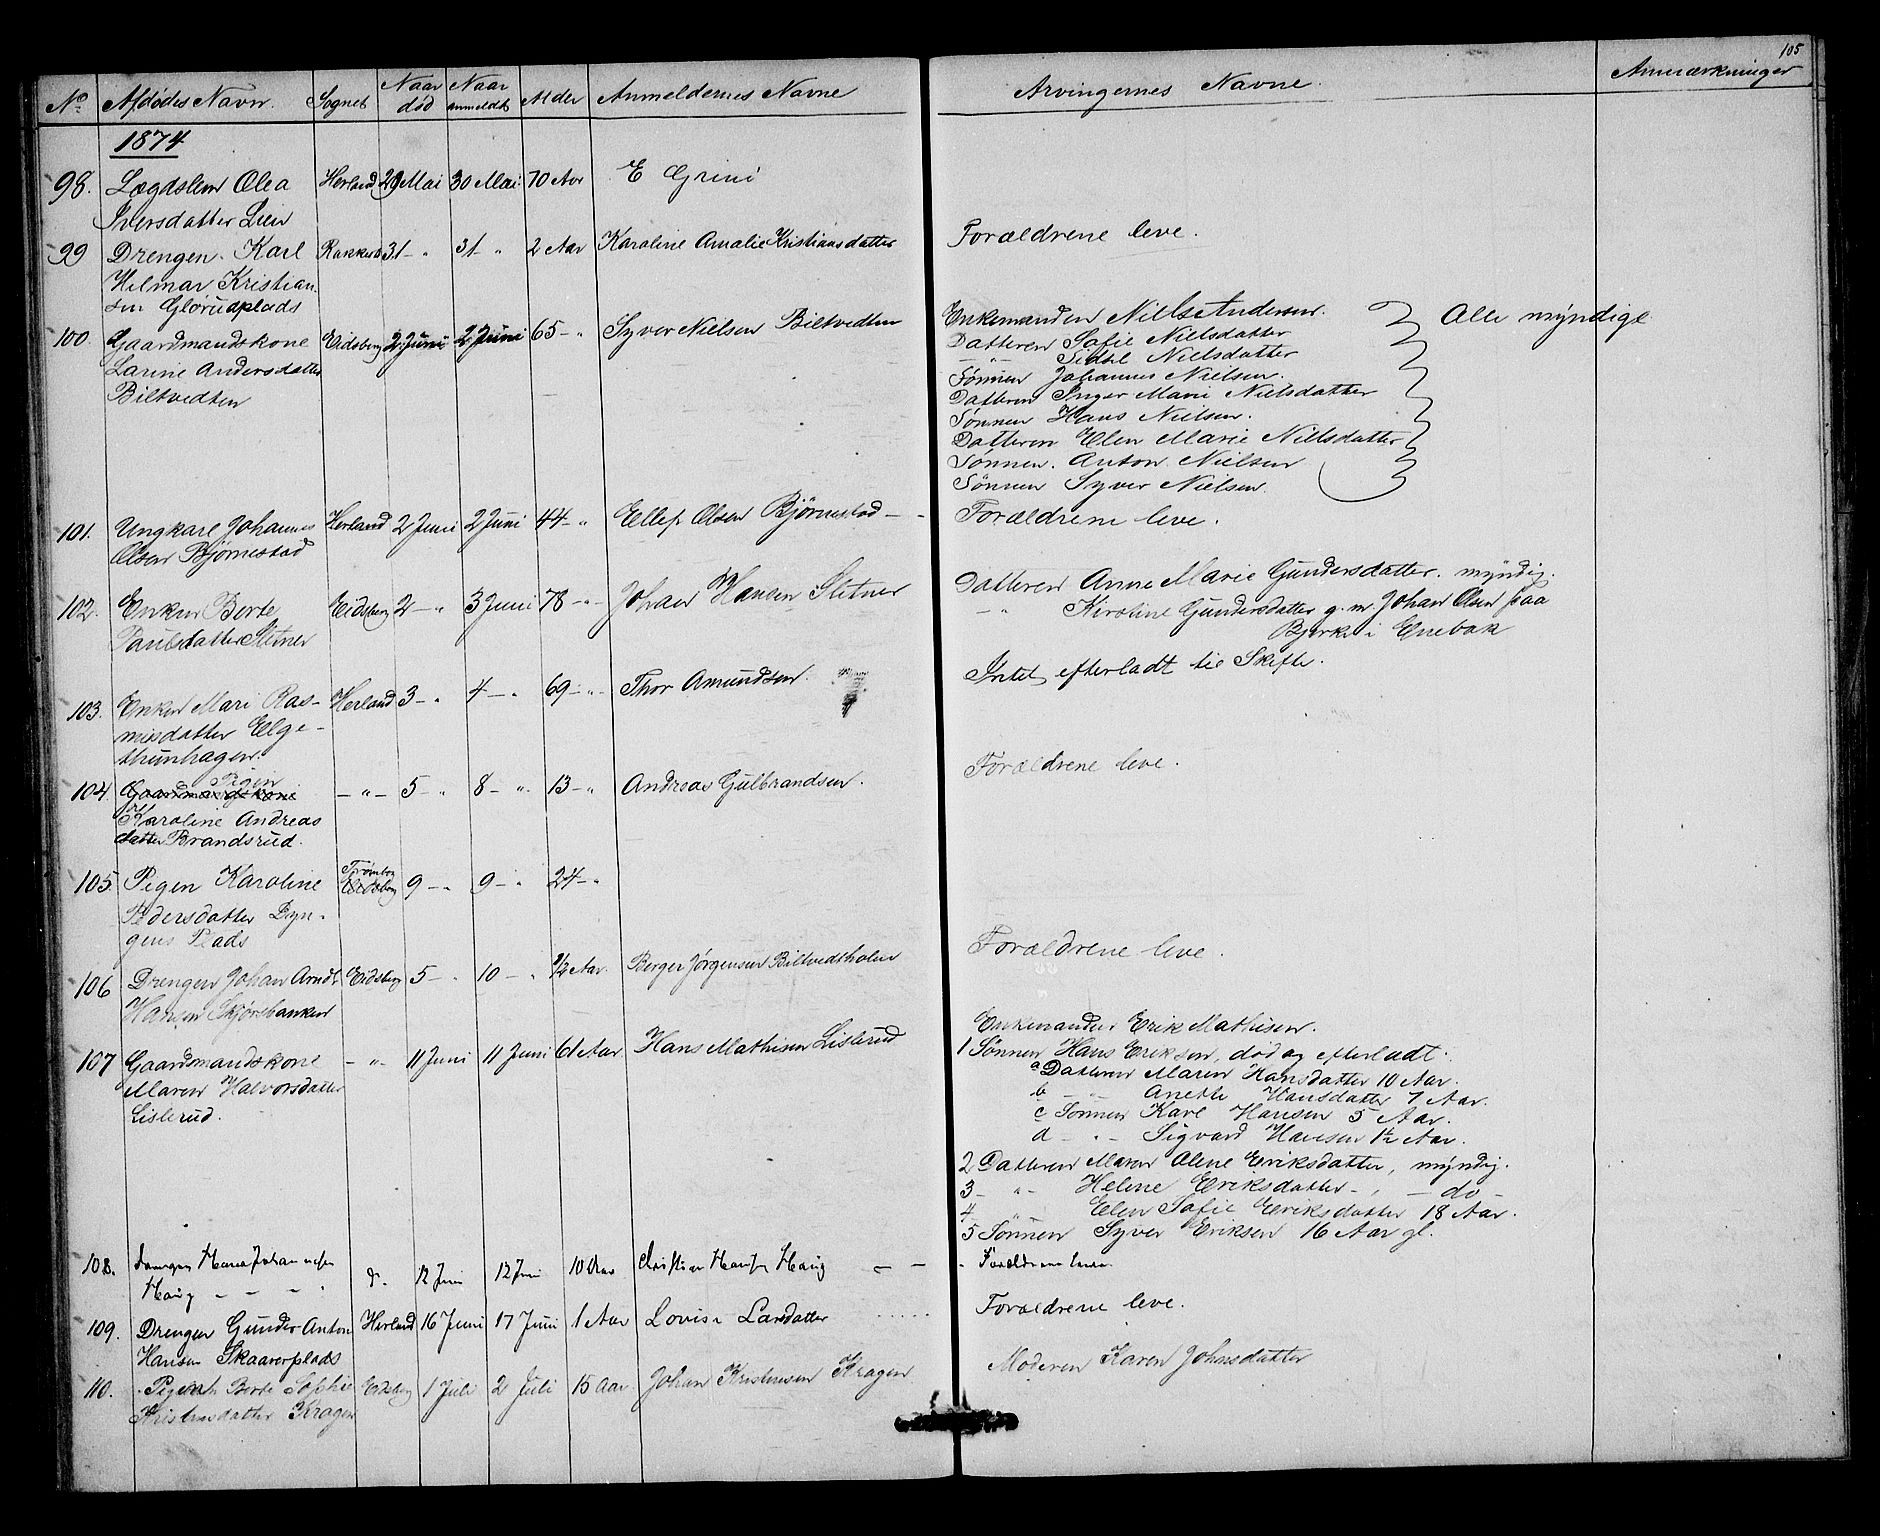 105
No Afdødes Navn. Sognet Naar død Naar anmeldt Alder Anmeldernes Navne Arvingernes Navne. Anmærkninger
1874
98. Lægdslem Olea Herland 29 Mai 30 Mai 70 Aar E Grini
Iversdatter Lien
99 Drengen Karl Rakkest 31 - " 31 - " 2 Aar Karoline Amalie Kristiansdatter Forældrene leve.
Hilmar Kristian-
sen Glørudplads
100. Gaardmandskone Eidsberg 2 Juni 2 Juni 65 - " Syver Nielsen Biltvedten Enkemanden Niels Andersen. Alle myndige
Larine Andersdatter Datteren Sofie Nielsdatter
Biltvedten - " - Sidsel Nielsdatter
Sønnen Johannes Nielsen.
Datteren Inger Marie Nielsdatter
Sønnen Hans Nielsen.
Datteren Elen Marie Nielsdatter
Sønnen. Anton Nielsen
Sønnen Syver Nielsen.
101. Ungkarl Johannes Herland 2 Juni 2 Juni 44 - " Ellef Olsen Bjørnestad - - Forældrene leve.
Olsen Bjørnestad
102. Enken Berte Eidsberg 2 - " 3 Juni 78 - " - Johan Hansen Sletner Datteren Anne Marie Gundersdatter. myndig.
Paulsdatter Sletner - " Karoline Gundersdatter g. m. Johan Olsen paa
Bjerke i Enebak
103. Enken Mari Ras- Herland 3 - " 4 - " 69 - " - Thor Amundsen. Intet efterladt til Skifte.
musdatter Elge-
thunhagen.
104. Gaardmandskone Pigen - " - 5 - " 8 - " 13 - " Andreas Gulbrandsen. Forældrene leve.
Karoline Andreas
datter Brandsrud.
105. Pigen Karoline Trømborg Eidsberg 9 - " 9 - " 24 - "
Pedersdatter Dyn-
gens Plads
106 Drengen Johan Arndt Eidsberg 5 - " 10 - " ½ Aar. Berger Jørgensen Biltvedtholen Forældrene leve.
Hansen Skjørsbanken
107 Gaardmandskone - " - 11 Juni 11 Juni 61 Aar Hans Mathisen Lislerud Enkemanden Erik Mathisen.
Maren Halvorsdatter 1 Sønnen Hans Eriksen, død og efterladt:
Lislerud. a Datteren Maren Hansdatter 10 Aar.
b - " - Anethe Hansdatter 7 Aar.
c Sønnen Karl Hansen 5 Aar.
d - " - Sigvard Hansen 1½ Aar.
2 Datteren Maren Oline Eriksdatter, myndig.
3 - " - Helene Eriksdatter - , - do -
4 Elen Sofie Eriksdatter 18 Aar.
5 Sønnen Syver Eriksen 16 Aar gl.
108. Drengen Hans Johannesen d. 12 Juni 12 Juni 10 Aar Christian Hansen Haug - - - Forældrene leve.
Haug - - - "
109. Drengen Gunder Anton Herland 16 Juni 17 Juni 1 Aar Lovise Larsdatter Forældrene leve.
Hansen Skaarerplads
110. Pigen Berte Sophie Eidsberg 1 Juli 2 Juli 15 Aar. Johan Kristensen Kragen Moderen Karen Johnsdatter
Kristensdatter Kragen